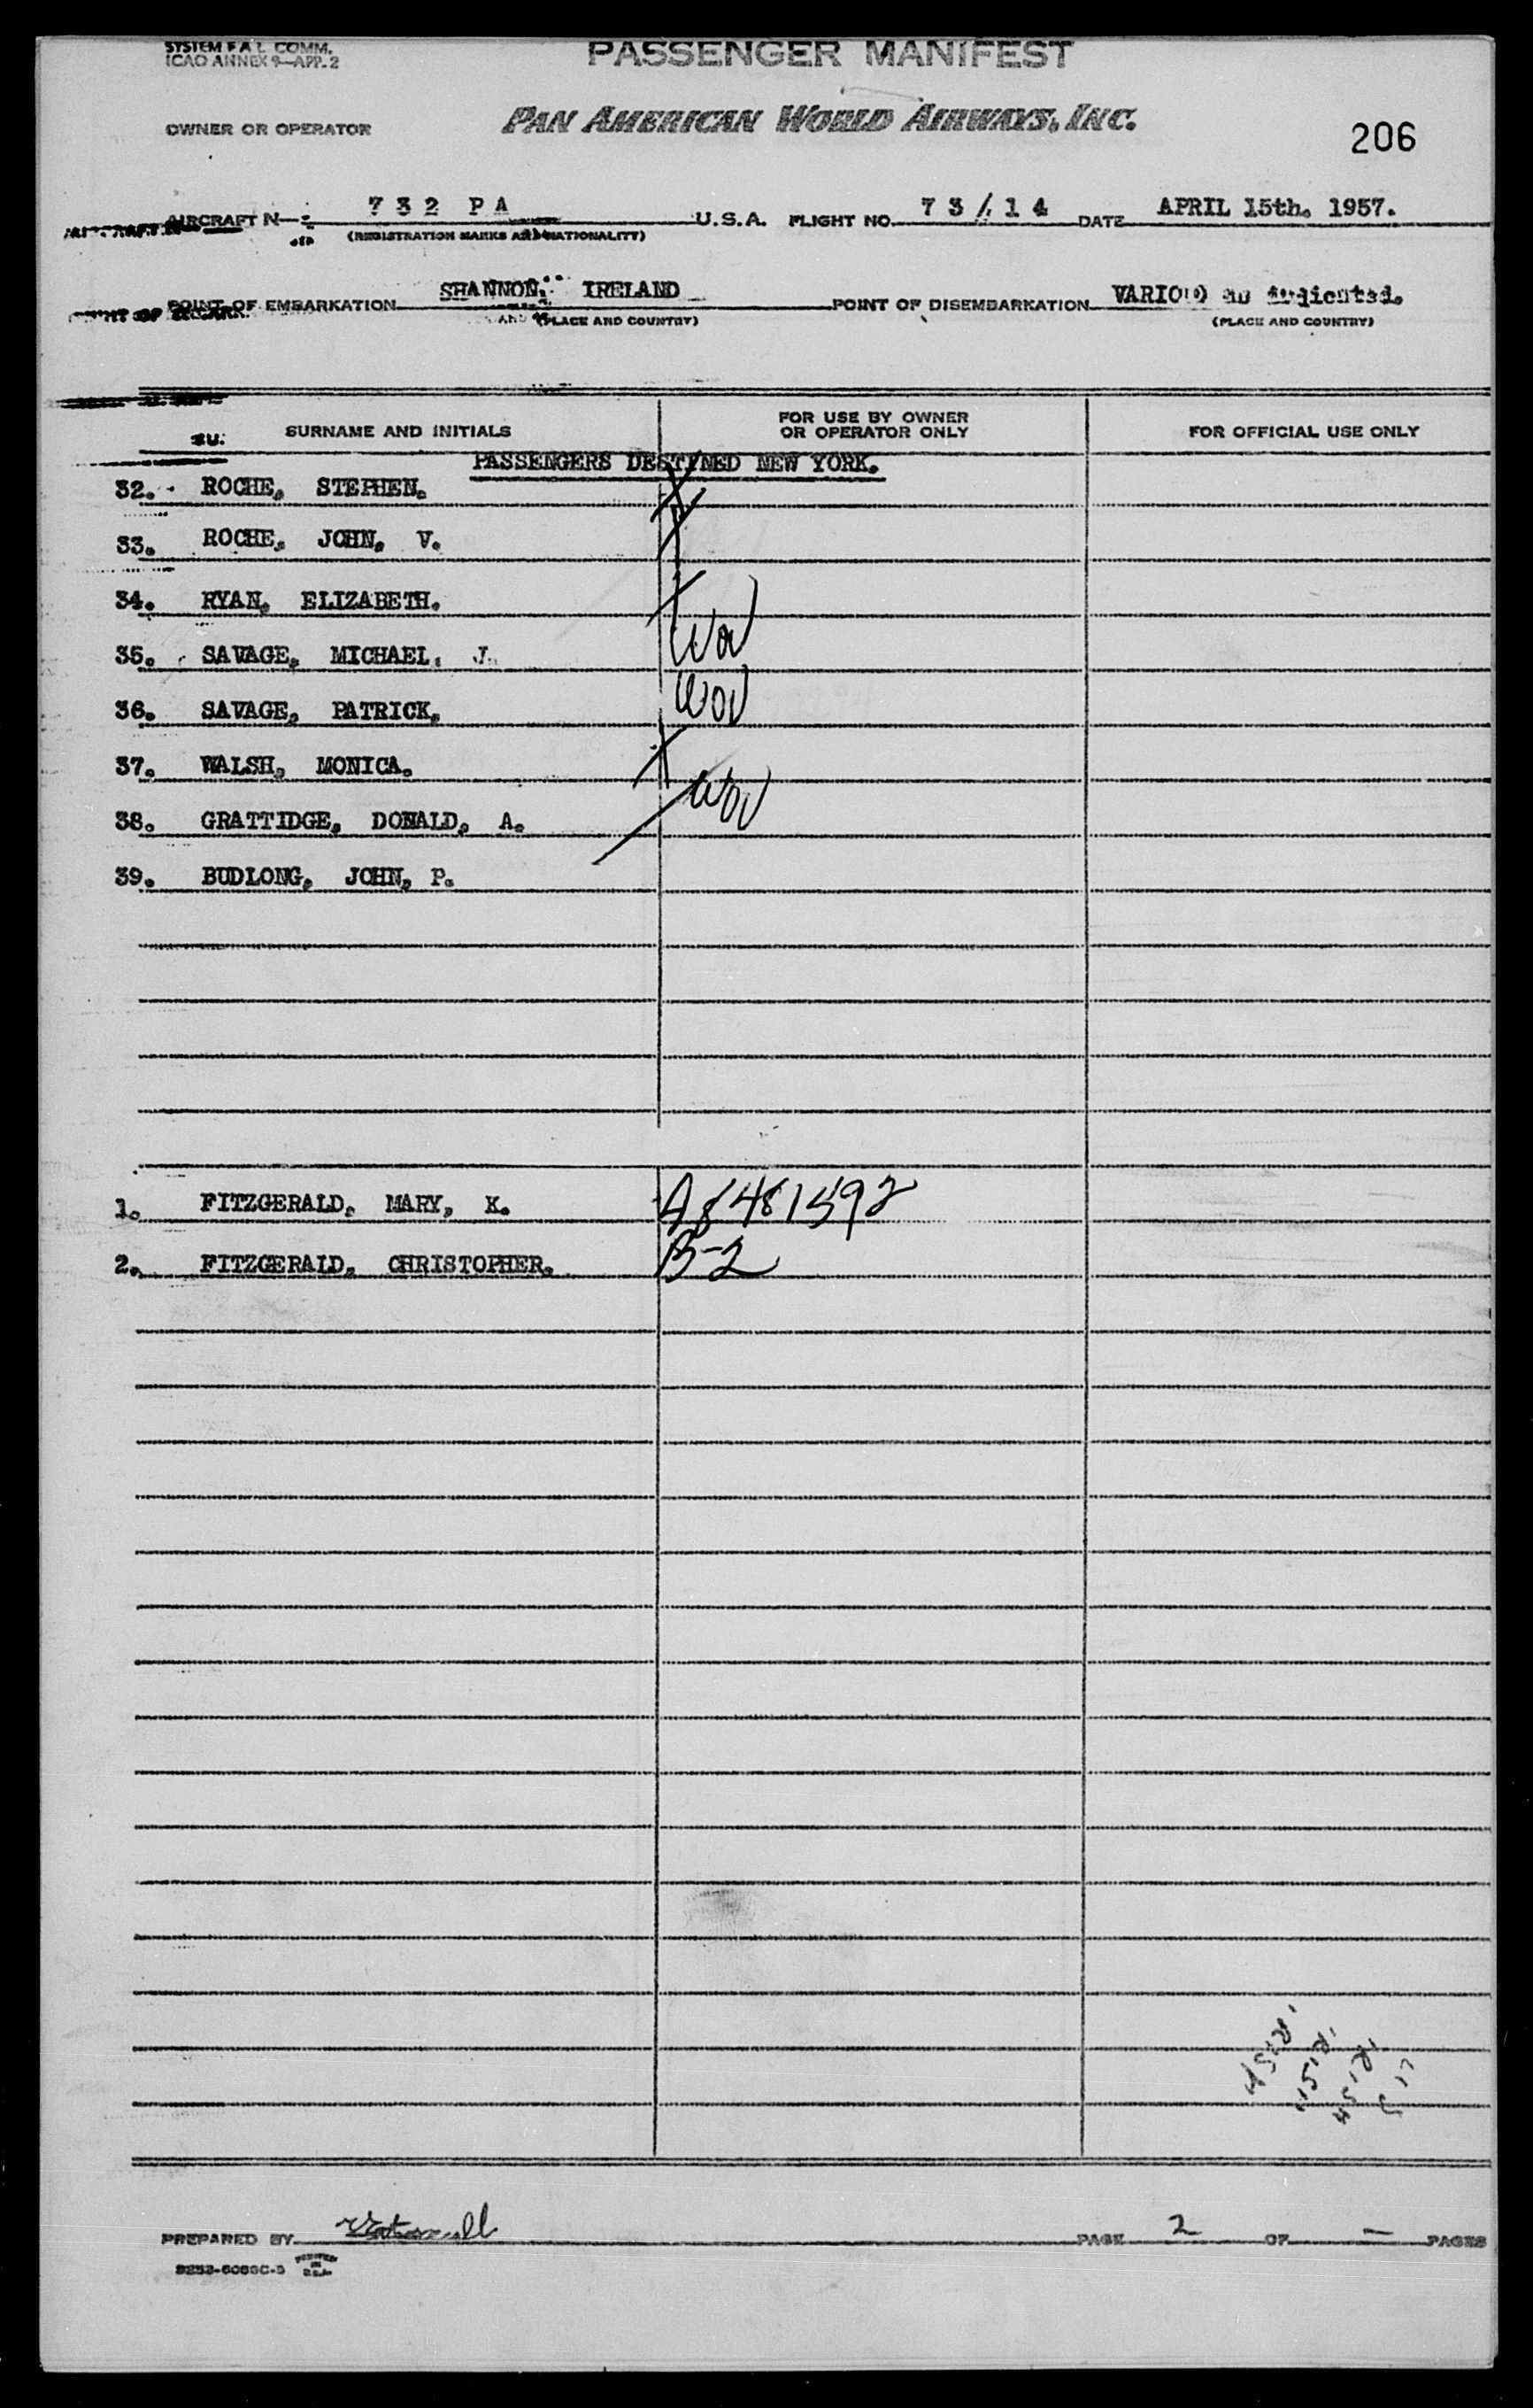 SYSTEM F A L COMM.
ICAO ANNEX 9—APP. 2
PASSENGER MANIFEST
OWNER OR OPERATOR
PAN AMERICAN WORLD AIRWAYS, INC.
206
AIRCRAFT N— 732 PA U.S.A. FLIGHT NO. 73/14 DATE APRIL 15th. 1957.
(REGISTRATION MARKS AND NATIONALITY)
POINT OF EMBARKATION SHANNON, IRELAND POINT OF DISEMBARKATION as indicated.
(PLACE AND COUNTRY) (PLACE AND COUNTRY)
SURNAME AND INITIALS FOR USE BY OWNER OR OPERATOR ONLY FOR OFFICIAL USE ONLY
PASSENGERS DESTINED NEW YORK.
32. ROCHE, STEPHEN.
33. ROCHE, JOHN, V.
34. RYAN, ELIZABETH.
35. SAVAGE, MICHAEL, J.
36. SAVAGE, PATRICK.
37. WALSH, MONICA.
38. GRATTIDGE, DONALD, A.
39. BUDLONG, JOHN, P.
1. FITZGERALD, MARY, K. A8481592
2. FITZGERALD, CHRISTOPHER. B-2
PREPARED BY PAGE 2 OF — PAGES